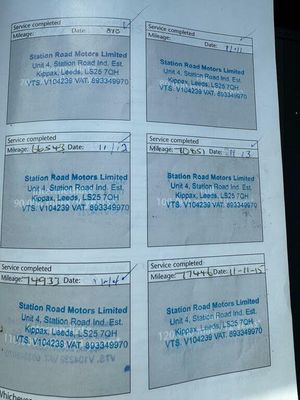 Service completed
Mileage: Date:
Station Road Motors Limited
Unit 4, Station Road Ind. Est.
Kippax, Leeds, LS25 7QH
VTS. V104239 VAT. 893349970
Service completed
Mileage:
Date: 11/11
Station Road Motors Limited
Unit 4, Station Road Ind. Est.
Kippax, Leeds, LS25 7QH
VTS. V104239 VAT. 893349970
Service completed
Mileage: 66543 Date: 11/12
Station Road Motors Limited
Unit 4, Station Road Ind. Est.
Kippax, Leeds, LS25 7QH
VTS. V104239 VAT. 893349970
Service completed
Mileage: 70851 Date: 11/13
Station Road Motors Limited
Unit 4, Station Road Ind. Est.
Kippax, Leeds, LS25 7QH
VTS. V104239 VAT. 893349970
Service completed
Mileage: 74933 Date:
Station Road Motors Limited
Unit 4, Station Road Ind. Est.
Kippax, Leeds, LS25 7QH
VTS. V104239 VAT. 893349970
Service completed
Mileage: 77446 Date: 11-11-15
Station Road Motors Limited
Unit 4, Station Road Ind. Est.
Kippax, Leeds, LS25 7QH
VTS. V104239 VAT. 893349970
Whichever